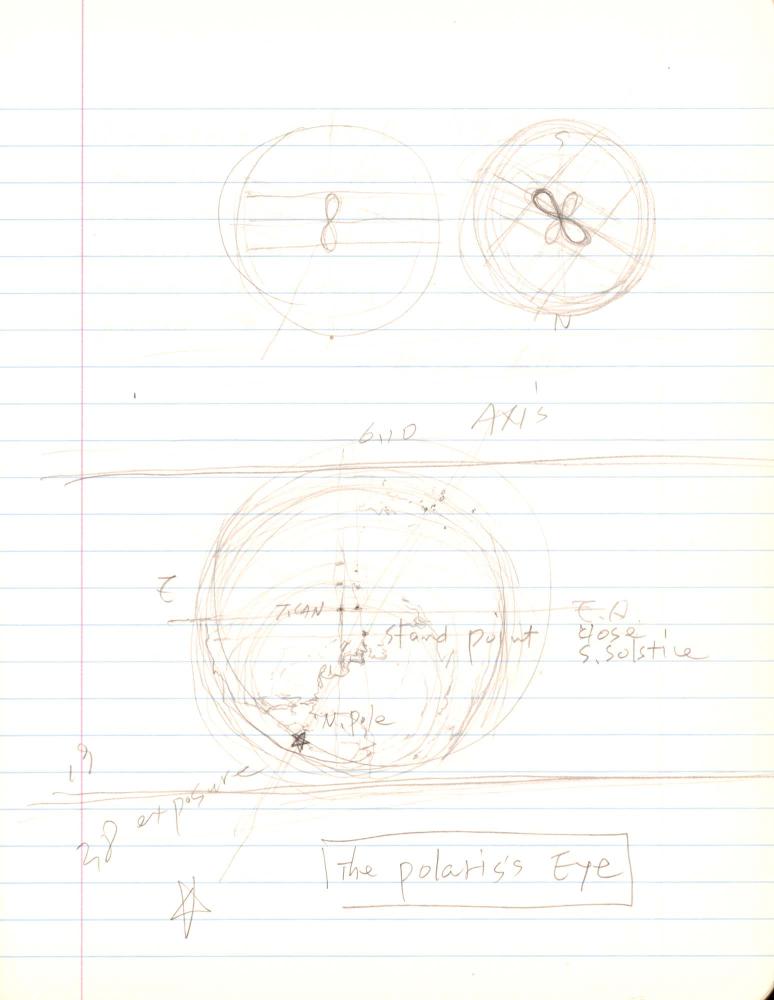 S
N
Axis
stand point
close
S. Solstice
N. Pole
19
28 exposure
The polaris's Eye